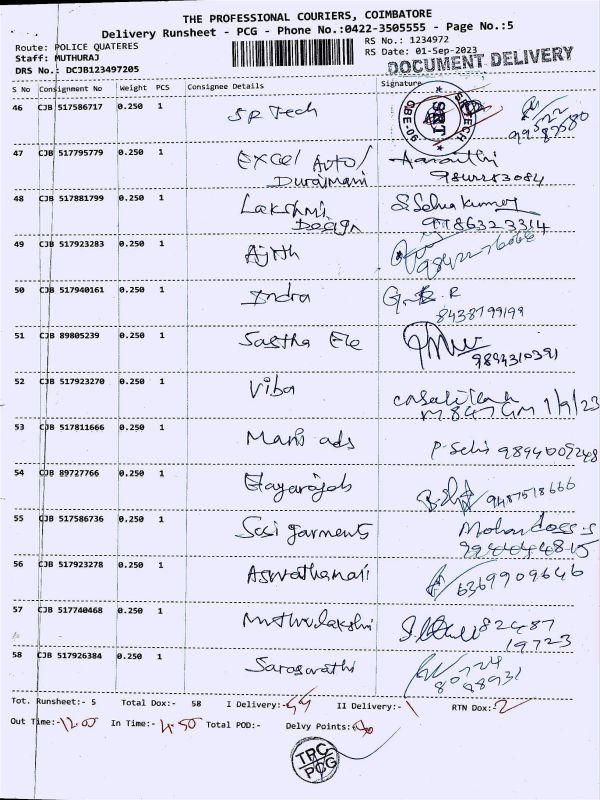 THE PROFESSIONAL COURIERS, COIMBATORE
Delivery Runsheet - PCG - Phone No.:0422-3505555 - Page No.:5
Route: POLICE QUATERES RS No.: 1234972
Staff: MUTHURAJ RS Date: 01-Sep-2023
DRS No.: DCJB123497205 DOCUMENT DELIVERY
S No Consignment No Weight PCS Consignee Details Signature
46 CJB 517586717 0.250 1 SR Tech
SRI TECH SRT CBE-09
47 CJB 517795779 0.250 1 Excel Auto/
Duraimani
48 CJB 517881799 0.250 1 Lakshmi S Selvakumar
Design 9786323314
49 CJB 517923283 0.250 1 Ajith
50 CJB 517940161 0.250 1 Indra
8438799199
51 CJB 89805239 0.250 1 Sastha Ele
9894310391
52 CJB 517923270 0.250 1 Viba
1/9/23
53 CJB 517811666 0.250 1 Mani ads P. Selvi 9894009248
54 CJB 89727766 0.250 1 9487518666
55 CJB 517586736 0.250 1 Sasi garments Mohandoss.s
9944444815
56 CJB 517923278 0.250 1 6369909646
57 CJB 517740468 0.250 1 Muthulakshmi 82487
19723
58 CJB 517926384 0.250 1 Saraswathi
Tot. Runsheet:- 5 Total Dox:- 58 I Delivery:- II Delivery:- 1 RTN Dox:- 2
Out Time:- 12.00 In Time:- 4.50 Total POD:- Delvy Points:-
TRC
PCG